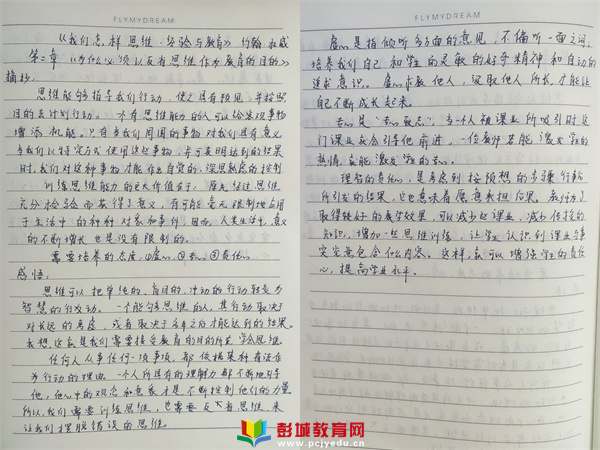 FLYMYDREAM
《我们怎样思维·经验与教育》 约翰·杜威
第二章《为什么必须以反省思维作为教育的目的》
摘抄:
思维能够指导我们行动,使之具有预见,并按照
目的去计划行动。一个有思维能力的人可以给实现事物
增添机能。只有当我们周围的事物对我们具有意义
与我们以特定方式使用这些事物,并可表明达到的结果
时,我们对这种事物才能作出自觉的、深思熟虑的控制
训练思维能力的巨大价值在于:原先经过思维
充分检验而获得了意义,有可能毫无限制地应用
于生活中的种种对象和事件,因而,人类生活中,意义
的不断增长也是没有限制的。
需要培养的态度:①虚心 ②专心 ③责任心
感悟:
思维可以把单纯的、盲目的、冲动的行动转变为
智慧的行动。一个能够思维的人,其行动取决于
对长远的考虑,或者取决于多年之后才能达到的结果。
我想,这就是我们需要接受教育的目的所在,学会思维。
任何人从事任何一项事项,都依据某种看法作
为行动的理由。一个人所具有的理解力都不断地引导
他,他心中的观念和意象才是不断控制他们的力量
所以,我们需要训练思维,也需要反省思维,来
让我们摆脱错误的思维。
FLYMYDREAM
虚心是指倾听多方面的意见,不偏听一面之词。
培养我们自己和学生的灵敏的好奇精神和自动的
追求意识。虚心求教他人,汲取他人所长,才能让自
己不断成长起来。
专心是"专心致志"。当一个人被课业所吸引时,这
门课业就会引导他前进,一位教师若能激发学生的
热情,就能激发学生的专心。
理智的责任心,是考虑到按预想的步骤行动
所引发的结果,它也意味着愿意承担后果。教师为了
取得较好的教学效果,可以减少些课业,减少传授的
知识,增加一些思维训练,让学生认识到课业与事
实究竟包含什么内容。这样,就可以增强学生的责任
心,提高学业水平。
彭城教育网
www.pcjyedu.cn